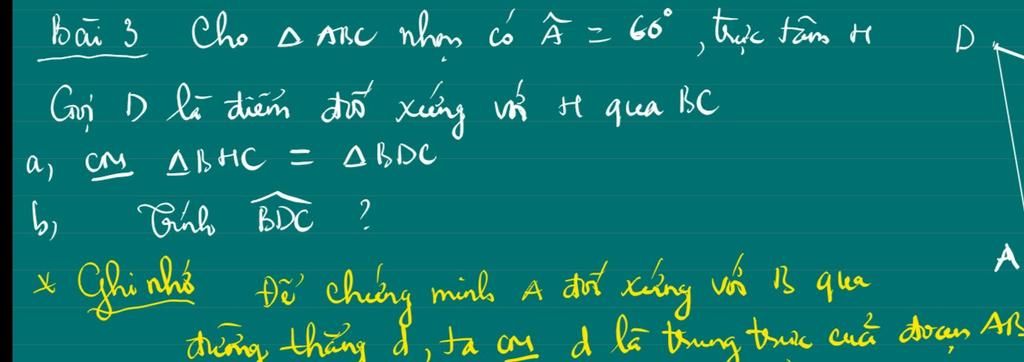 Bài 3 Cho △ ABC nhọn có Â = 60°, trực tâm H
D
Gọi D là điểm đối xứng với H qua BC
a, CM △BHC = △BDC
b, Tính BDC ?
A
* Ghi nhớ Để chứng minh A đối xứng với B qua
đường thẳng d, ta CM d là trung trực của đoạn AB